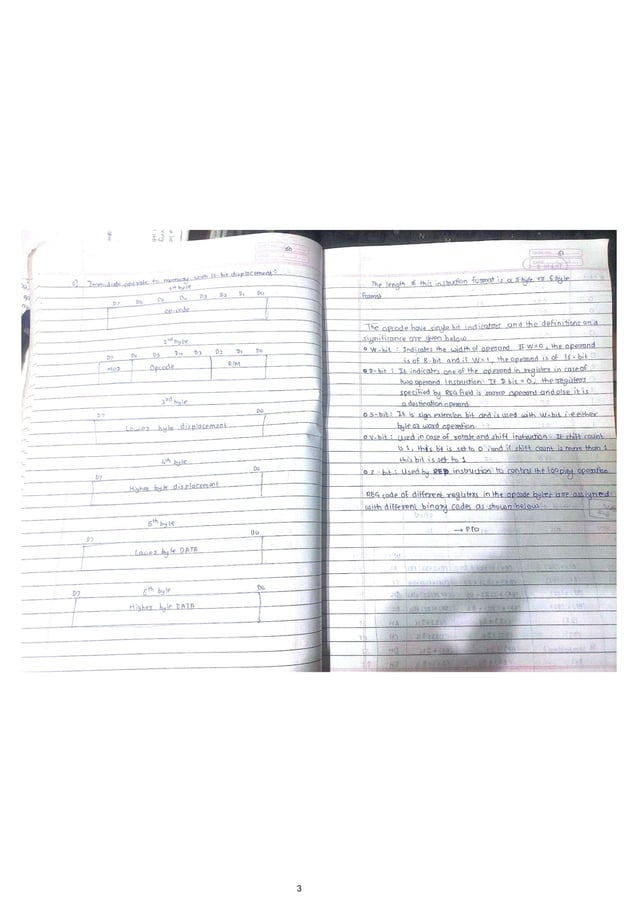 50
6] Immediate operate to memory with 16-bit displacement:
1st byte
D7 D6 D5 D4 D3 D2 D1 D0
op-code
2nd byte
D7 D6 D5 D4 D3 D2 D1 D0
MOD Opcode R/M
3rd byte
D7 D0
Lower byte displacement
4th byte
D7 D0
Higher byte displacement
5th byte
D7 D0
Lower byte DATA
6th byte
D7 D0
Higher byte DATA
51
The length of this instruction format is a 5 byte or 6 byte
Format
The opcode have single bit indicators and the definitions and
significance are given below
W-bit : Indicates the width of operand. If W=0, the operand
is of 8-bit and if W=1, the operand is of 16-bit
D-bit : It indicates one of the operand in register in case of
two operand instruction. If D bit = 0, the registers
specified by REG field is source operand and else it is
a destination operand.
S-bit : It is sign extension bit and is used with W-bit i.e either
byte or word operation.
V-bit : Used in case of rotate and shift instruction. If shift count
is 1, this bit is set to 0 and if shift count is more than 1
this bit is set to 1
Z-bit : Used by REP instruction to control the looping operation
REG code of different registers in the opcode bytes are assigned
with different binary codes as shown below
→ P.T.O
3